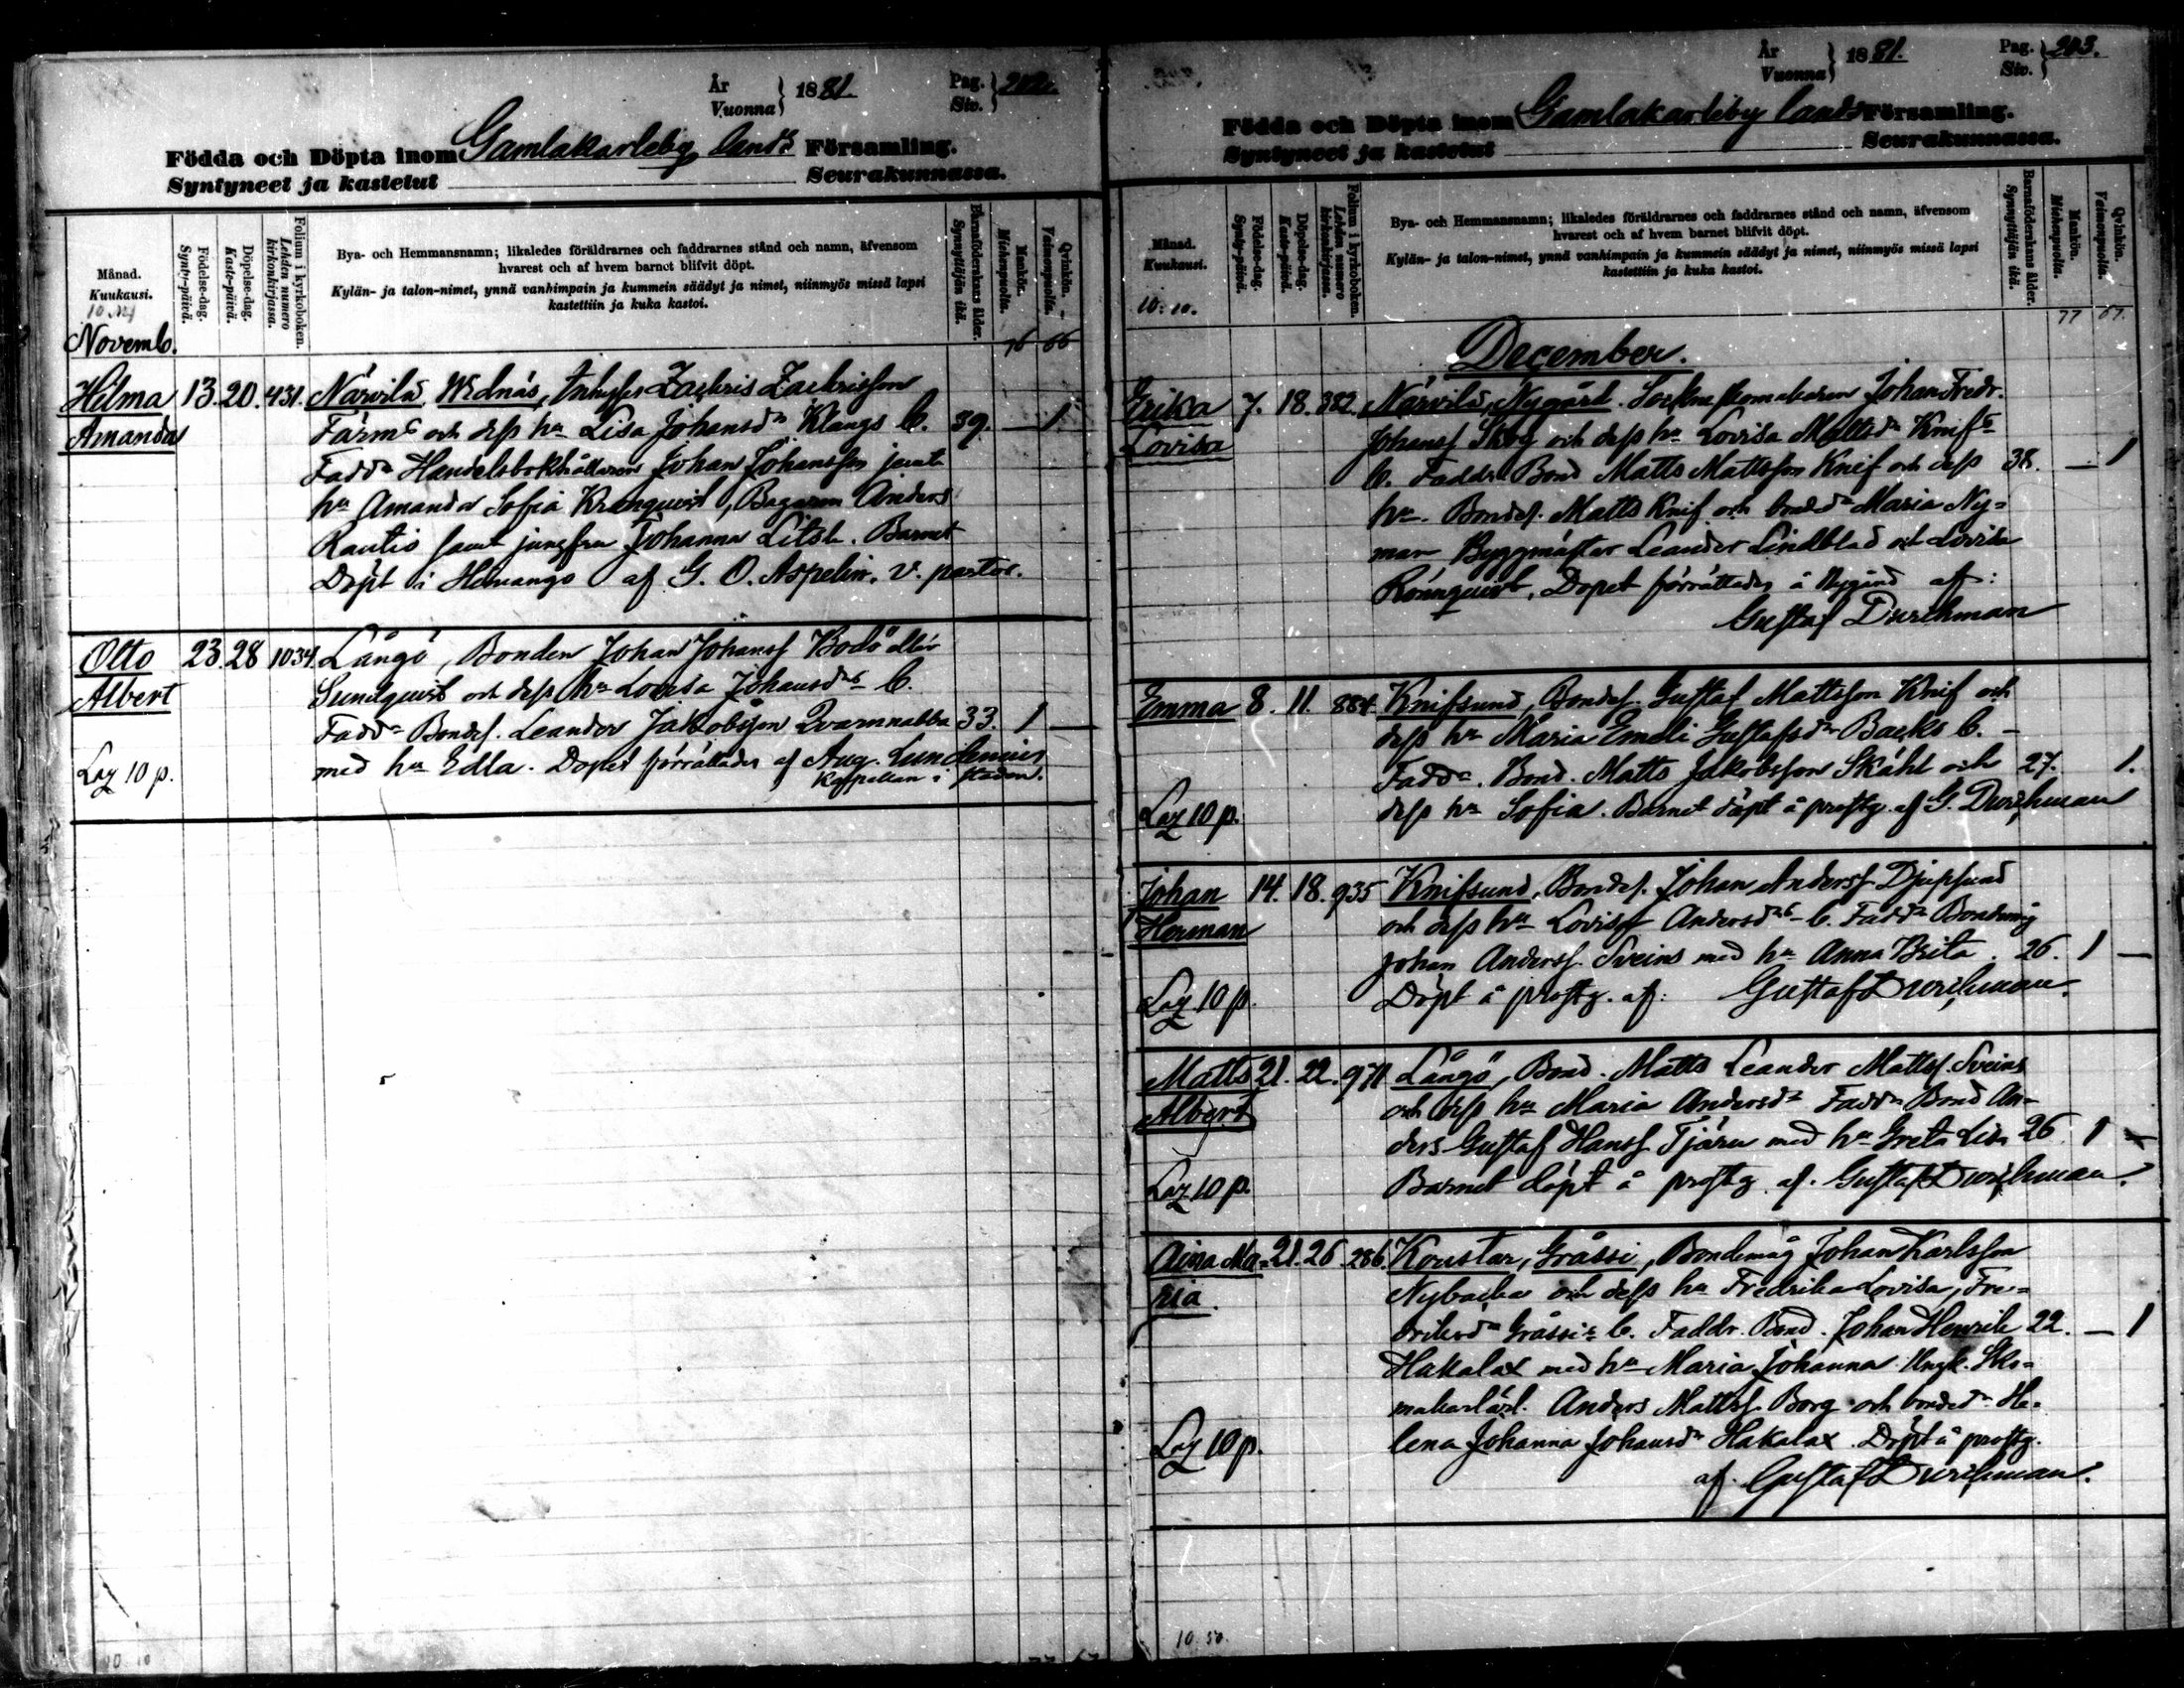 År
Vuonna } 1881.
Pag.
Siv. } 202.
Födda och Döpta inom Gamlakarleby lands Församling.
Syntyneet ja kastetut Seurakunnassa.
Månad.
Kuukausi.
Födelse-dag.
Synty-päivä.
Döpelse-dag.
Kaste-päivä.
Folium i kyrkoboken.
Lehden numero kirkonkirjassa.
Bya- och Hemmansnamn; likaledes föräldrarnes och faddrarnes stånd och namn, äfvensom
hvarest och af hvem barnet blifvit döpt.
Kylän- ja talon-nimet, ynnä vanhimpain ja kummein säädyt ja nimet, niinmyös missä lapsi
kastettiin ja kuka kastoi.
Barnaföderskans ålder.
Synnyttäjän ikä.
Mankön.
Miehenpuolia.
Qvinkön.
Vaimonpuolia.
Novemb. 76 66
Helma 13. 20. 431. Närvilä Widnäs, Inhyses Zachris Zachrisson
Amanda Färm och dess hu Lisa Johansdr Klangs b. 39. — 1
Faddr Handelsbokhållaren Johan Johansson jemte
hu Amanda Sofia Kranquist, Bagaren Anders
Rautio samt jungfru Johanna Litsle. Barnet
Döpt i Himango af G. O. Aspelin, v. pastor.
Otto 23. 28 1034. Långö, Bonden Johan Johanss Bodö eller
Albert Sundquist och dess hu Lovisa Johansdr b.
Faddr Bondes. Leander Jakobsson Qvarnnabba 33. 1 —
Lag 10 p. med hu Edla. Dopet förrättades af Aug. Lundenius
Kapellan i staden.
År
Vuonna } 1881.
Pag.
Siv. } 203.
Födda och Döpta inom Gamlakarleby lands Församling.
Syntyneet ja kastetut Seurakunnassa.
Månad.
Kuukausi.
10: 10.
Födelse-dag.
Synty-päivä.
Döpelse-dag.
Kaste-päivä.
Folium i kyrkoboken.
Lehden numero kirkonkirjassa.
Bya- och Hemmansnamn; likaledes föräldrarnes och faddrarnes stånd och namn, äfvensom
hvarest och af hvem barnet blifvit döpt.
Kylän- ja talon-nimet, ynnä vanhimpain ja kummein säädyt ja nimet, niinmyös missä lapsi
kastettiin ja kuka kastoi.
Barnaföderskans ålder.
Synnyttäjän ikä.
Mankön.
Miehenpuolia.
Qvinkön.
Vaimonpuolia.
77 67.
December.
Erika 7. 18. 382. Närvilä, Nygård. Sockneskomakaren Johan Fredr.
Lovisa Johanss Skog och dess hu Lovisa Mattsdr Knifs
b. Faddr Bond Matts Mattsson Knif och dess 38. — 1
hu. Bondes. Matts Knif och bondedr Maria Ny=
man Byggmäster Leander Lindblad och Lovisa
Rönnquist. Dopet förrättades å Nygård af:
Gustaf Durchman
Emma 8. 11. 884. Knifsund, Bondes. Gustaf Mattsson Knif och
dess hu Maria Emeli Gustafsdr Backs b. -
Faddr. Bond. Matts Jakobsson Skåhl och 27. 1.
Lag 10 p. dess hu Sofia. Barnet döpt å prostg. af G. Durchman
Johan 14. 18. 935 Knifsund, Bondes. Johan Anderss Djupsund
Herman och dess hu Lovisa Andersdr b. Faddr Bondemåg
Johan Anderss. Sveins med hu Anna Brita. 26. 1 —
Lag 10 p. Döpt å prostg. af: Gustaf Durchman.
Matts 21. 22. 971 Långö, Bond. Matts Leander Mattss. Sveins
Albert och dess hu Maria Andersdr Faddr Bond An-
ders Gustaf Hanss Tjäru med hu Greta Lisa 26 1 —
Lag 10 p. Barnet döpt å prostg. af. Gustaf Durchman.
Aina Ma= 21. 26. 286. Koustar, Gråssi, Bondemåg Johan Karlsson
ria. Nybacka och dess hu Fredrika Lovisa, Fre=
driksdr Gråssis b. Faddr. Bond. Johan Henrik 22. — 1
Hakalax med hu Maria Johanna Ungk. Sko=
makarlärl. Anders Mattss. Borg och bondedr He=
Lag 10 p. lena Johanna Johansdr Hakalax. Döpt å prostg.
af. Gustaf Durchman.
10. 50.